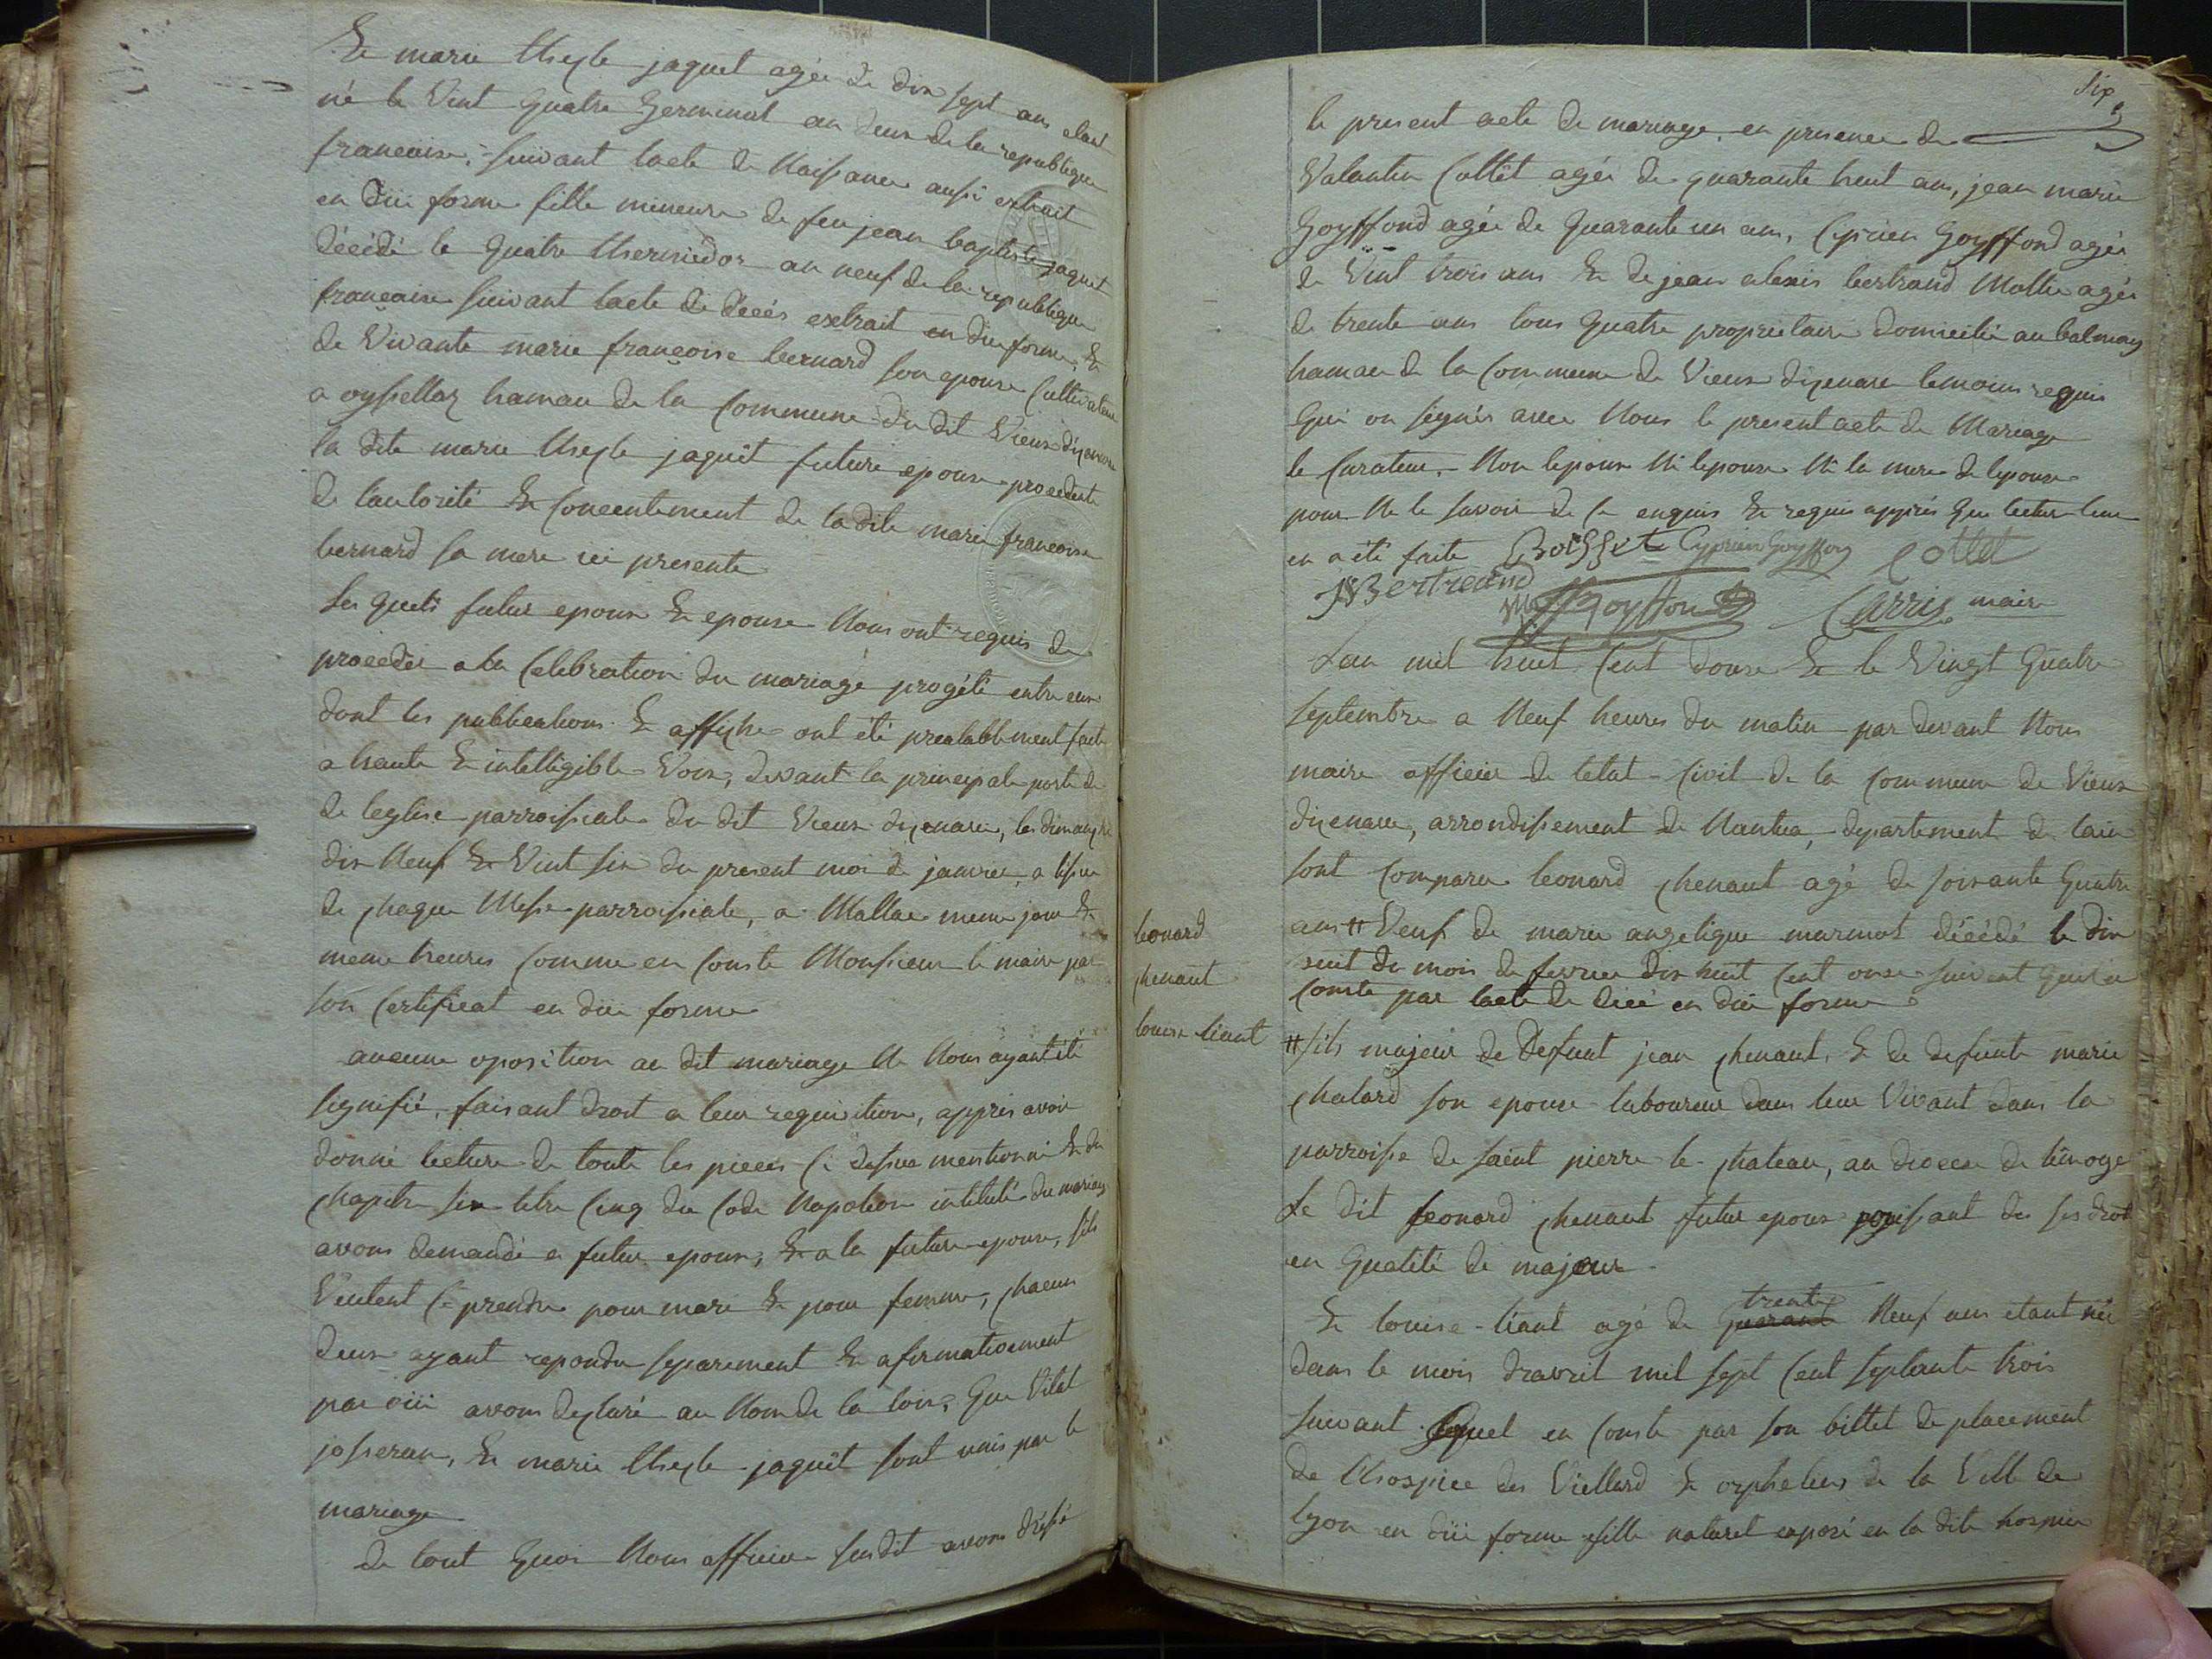 Et marie thecle jaquet agée de dix sept ans etant
né le vint quatre Germinal an deux de la republique
francaise, suivant lacte de Naissance aussi extrait
en düe forme fille mineure de feu jean baptiste jaquet
décédé le quatre thermidor an neuf de la republique
francaise suivant lacte de décés extrait en due forme, &
de vivante marie françoise bernard son epouse Cultivateur
a oyssellaz hamau de la Commune du dit Vieux dizenave
la dite marie thecle jaquêt future epouse procedente
de lautorité & Concentement de ladite marie francoise
bernard sa mere ici presente
Les quels futur epoux & epouse Nous ont requis de
procedér a la Celebration du mariage progété entre eux
dont les publications & affiche ont été prealablement faite
a haute & intelligible Voix, devant la principale porte de
de leglise parroissiale du dit Vieux dizenave, les dimanche
dix Neuf & Vint six du present moi de janvier, a lissue
de chaque Messe parroissiale, a Maillac meme jour &
meme heures Comme en Conste Monsieur le maire par
son Certificat en düe forme
aucune oposition au dit mariage Ne Nous ayant été
signifié, faisant droit a leur requisition, apprés avoir
donné lecture de toute les pieces Ci dessus mentionné & du
chapitre six titre Cinq du Code Napoleon intitulé du mariage
avons demandé a futur epoux, & a la future epouse, sils
Veulent Ce prendre pour mari & pour femme, chacun
deux ayant repondu separement & afirmativement
par oüi avons declaré au Nom de la loix, que Vital
josseran, & marie thecle jaquêt sont unis par le
mariage
de tout quoi Nous officier susdit avons dréssé
six
le present acte de mariage, en presence de
Valentin Collét agée de quarante huit ans, jean marie
Goyffond agée de quarante un ans, Ciprien Goyffond agée
de Vint trois ans & de jean alexis bertrand Mollie agée
de trente ans tous quatre proprietaire domicilié au balmay
hamau de la Commune de Vieux dizenave temoins requis
Qui on signés avec Nous le present acte de Mariage
le Curateur, Non lepoux Ni lepouse Ni la mere de lepouse
pour Ne le savoir de Ce enquis & requis apprés que lecture leur
en a été faite Boisset Cyprien Goyffon Collet
JABertrand
Goyffon Carris, maire
Lan mil huit Cent douze & le Vingt quatre
septembre a Neuf heures du matin par devant Nous
maire officier de letat Civil de la Commune de Vieux
dizenave, arrondissement de Nantua, departement de lain
sont Comparu leonard chenaut agé de soixante quatre
ans # Veuf de marie angelique marmot décédé le dix
suit du mois de fevrier dix huit Cent onze suivent quil en
Conste par lacte de décé en düe forme
# fils majeur de Defunt jean chenaut, & de defunte marie
chalard son epouse laboureur dans leur Vivant dans la
parroisse de saint pierre le chateau, au diocese de limoge
Le dit leonard chenaut futur epoux jouissant de ses droit
en qualité de majeur
Et louise tiant agé de quarant trente Neuf ans etant née
dans le mois davril mil sept Cent septante trois
suivant lequel en Conste par son billet de placement
de lhospice des Viellard & orphelins de la Ville de
lyon en düe forme fille naturel exposé en la dite hospice
leonard
chenaut
louise tiant